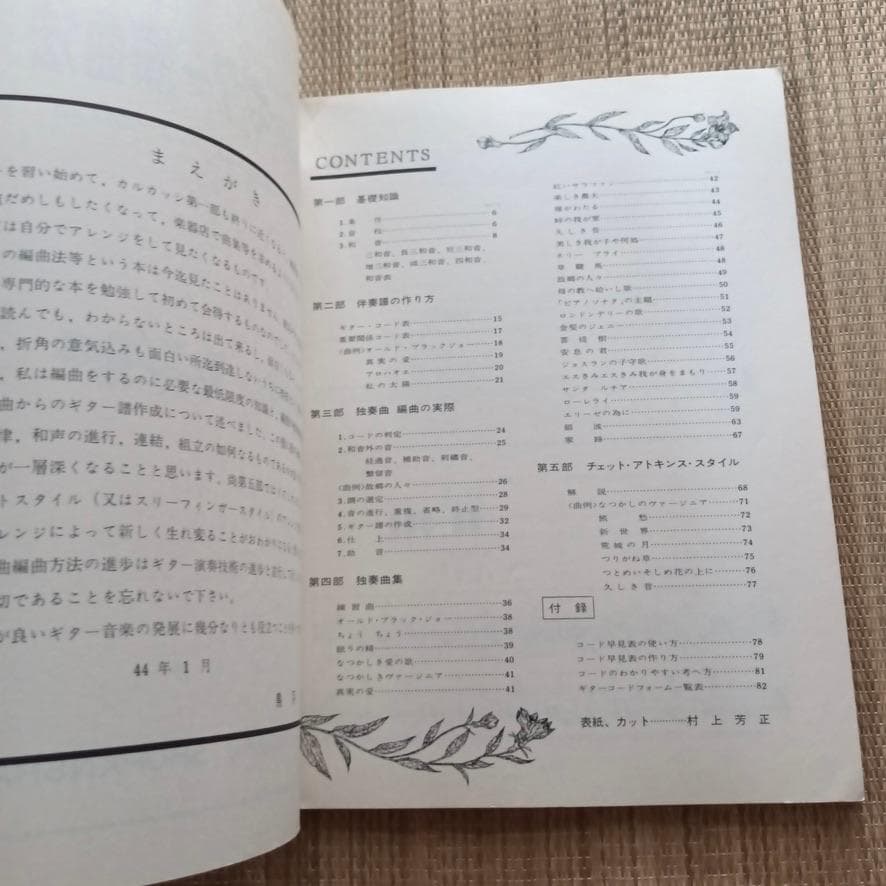 まえがき
を習い始めて，カルカッシ第一部も終りに近くなる
だめしもしたくなって，楽器店で曲集等を求める
は自分でアレンジをして見たくなるものです
の編曲法等という本は今迄見たことはありません
専門的な本を勉強して初めて会得するものなので
読んでも，わからないところは出て来るし，
，折角の意気込みも面白い所迄到達しないうちに
，私は編曲をするのに必要な最低限度の知識と，
曲からのギター譜作成について述べました。
律，和声の進行，連結，組立の如何なるものであるか
が一層深くなることと思います。尚第五部では
トスタイル（又はスリーフィンガースタイル）
レンジによって新しく生れ変ることがおわかりに
曲編曲方法の進歩はギター演奏技術の進歩と
切であることを忘れないで下さい。
が良いギター音楽の発展に幾分なりとも役立つこと
44年1月
CONTENTS
第一部 基礎知識
1.条件 6
2.音程 6
3.和音 8
三和音、長三和音、短三和音、
増三和音、減三和音、四和音、
和音表
第二部 伴奏譜の作り方
ギター・コード表 15
重要関係コード表 17
〈曲例〉オールド・ブラックジョー 18
真実の愛 19
アロハオエ 20
私の太陽 21
第三部 独奏曲 編曲の実際
1.コードの判定 24
2.和音外の音 25
経過音、補助音、刺繍音、
繋留音
〈曲例〉故郷の人々 26
3.調の選定 28
4.音の進行、重複、省略、終止型 29
5.ギター譜の作成 32
6.仕上 34
7.助言 34
第四部 独奏曲集
練習曲 36
オールド・ブラック・ジョー 38
ちょうちょう 38
眠りの精 39
なつかしき愛の歌 40
なつかしきヴァージニア 41
真実の愛 41
紅いサラファン 42
楽しき農夫 43
雁がわたる 44
45
久しき昔 46
美しき我が子や何処 46
ネリー ブライ 47
草競馬 48
故郷の人々 49
母の教へ給いし歌 50
「ピアノソナタ」の主題 51
ロンドンデリーの歌 52
金髪のジェニー 53
54
55
ジョスランの子守歌 56
エスきみエスきみ我が身をまもり 57
サンタ ルチア 58
ローレライ 59
エリーゼの為に 59
63
家路 67
第五部 チェット・アトキンス・スタイル
解説 68
〈曲例〉なつかしのヴァージニア 71
旅愁 72
新世界 73
荒城の月 74
つりがね草 75
つとめいそしめ花の上に 76
久しき昔 77
付録
コード早見表の使い方 78
コード早見表の作り方 79
コードのわかりやすい考へ方 81
ギターコードフォーム一覧表 82
表紙、カット………村上芳正